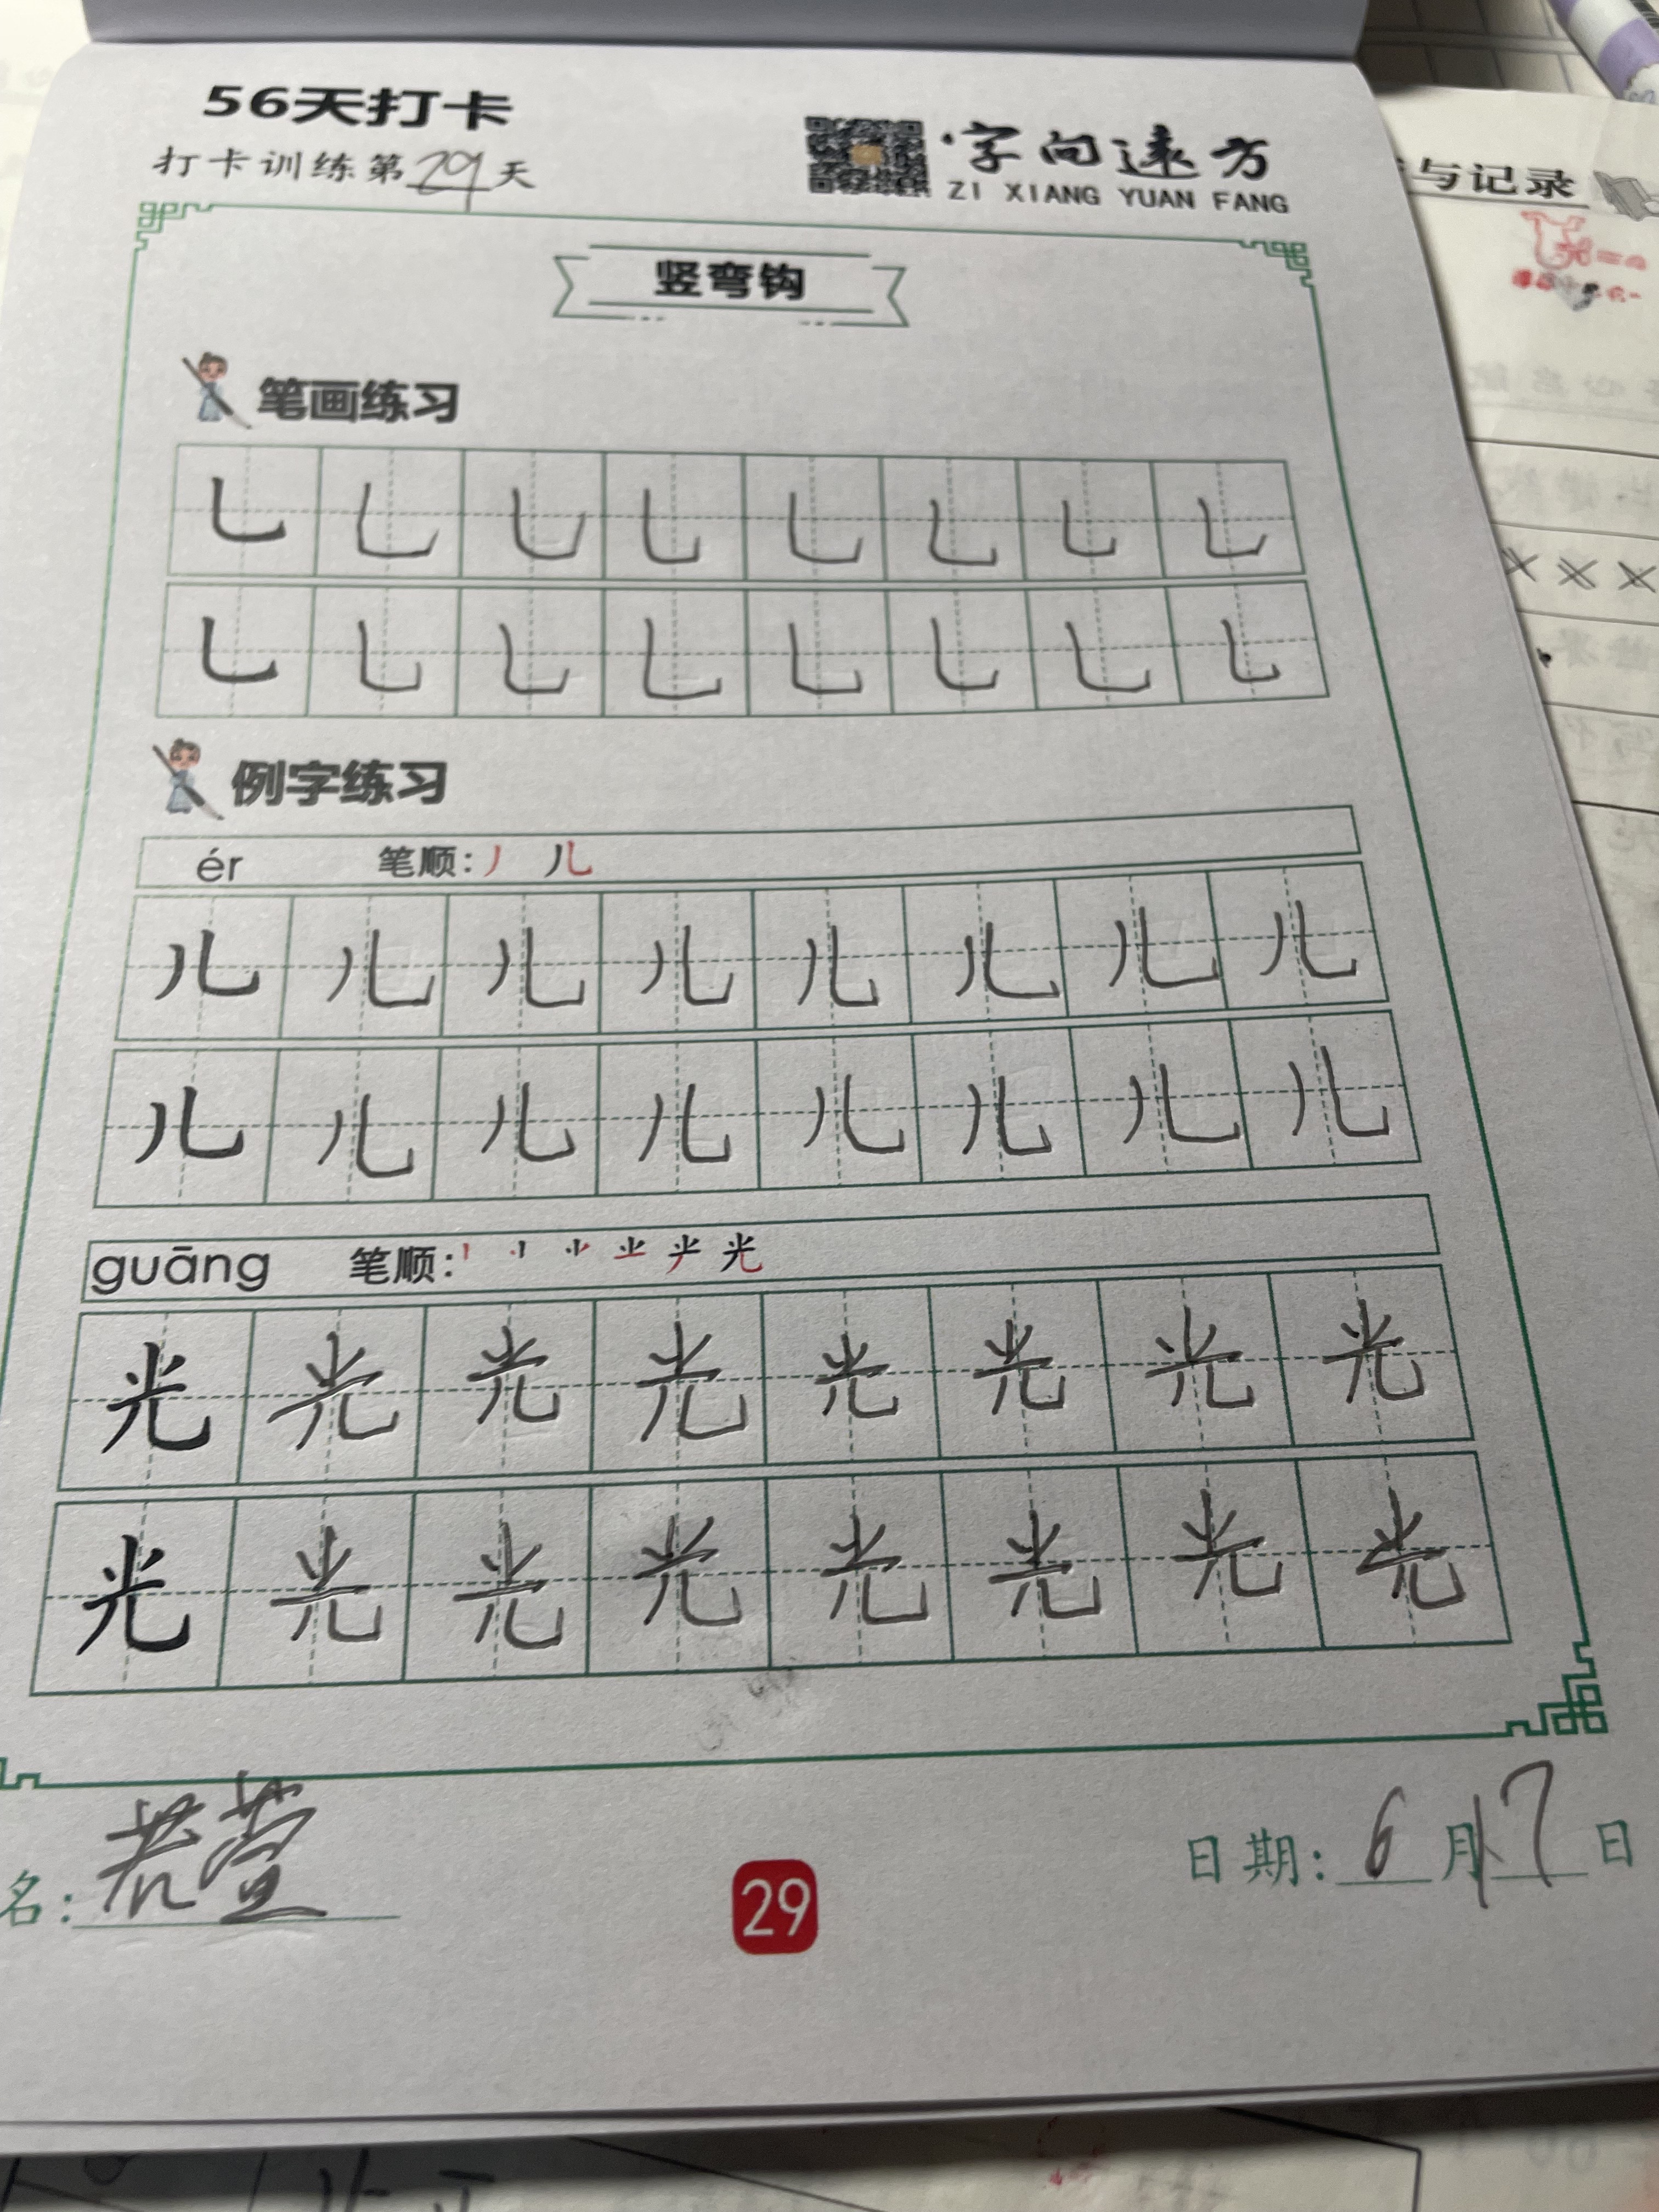 56天打卡
打卡训练第29天
字向远方
ZI XIANG YUAN FANG
与记录
竖弯钩
笔画练习
乚 乚 乚 乚 乚 乚 乚 乚
乚 乚 乚 乚 乚 乚 乚 乚
例字练习
ér 笔顺: 丿 儿
儿 儿 儿 儿 儿 儿 儿 儿
儿 儿 儿 儿 儿 儿 儿 儿
guāng 笔顺: 光
光 光 光 光 光 光 光 光
光 光 光 光 光 光 光 光
名:
日期: 6月17日
29